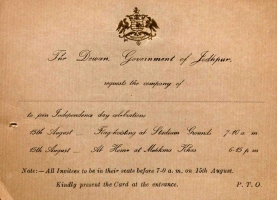 The Dewan, Government of Jodhpur.
requests the company of
to join Independence day celebrations
15th August _ Flag-hoisting at Stadium Grounds 7-10 a. m
15th August _ At Home at Mehkma Khas 6-15 p. m
Note:—All Invitees to be in their seats before 7-0 a. m. on 15th August.
Kindly present the Card at the entrance. P. T. O.